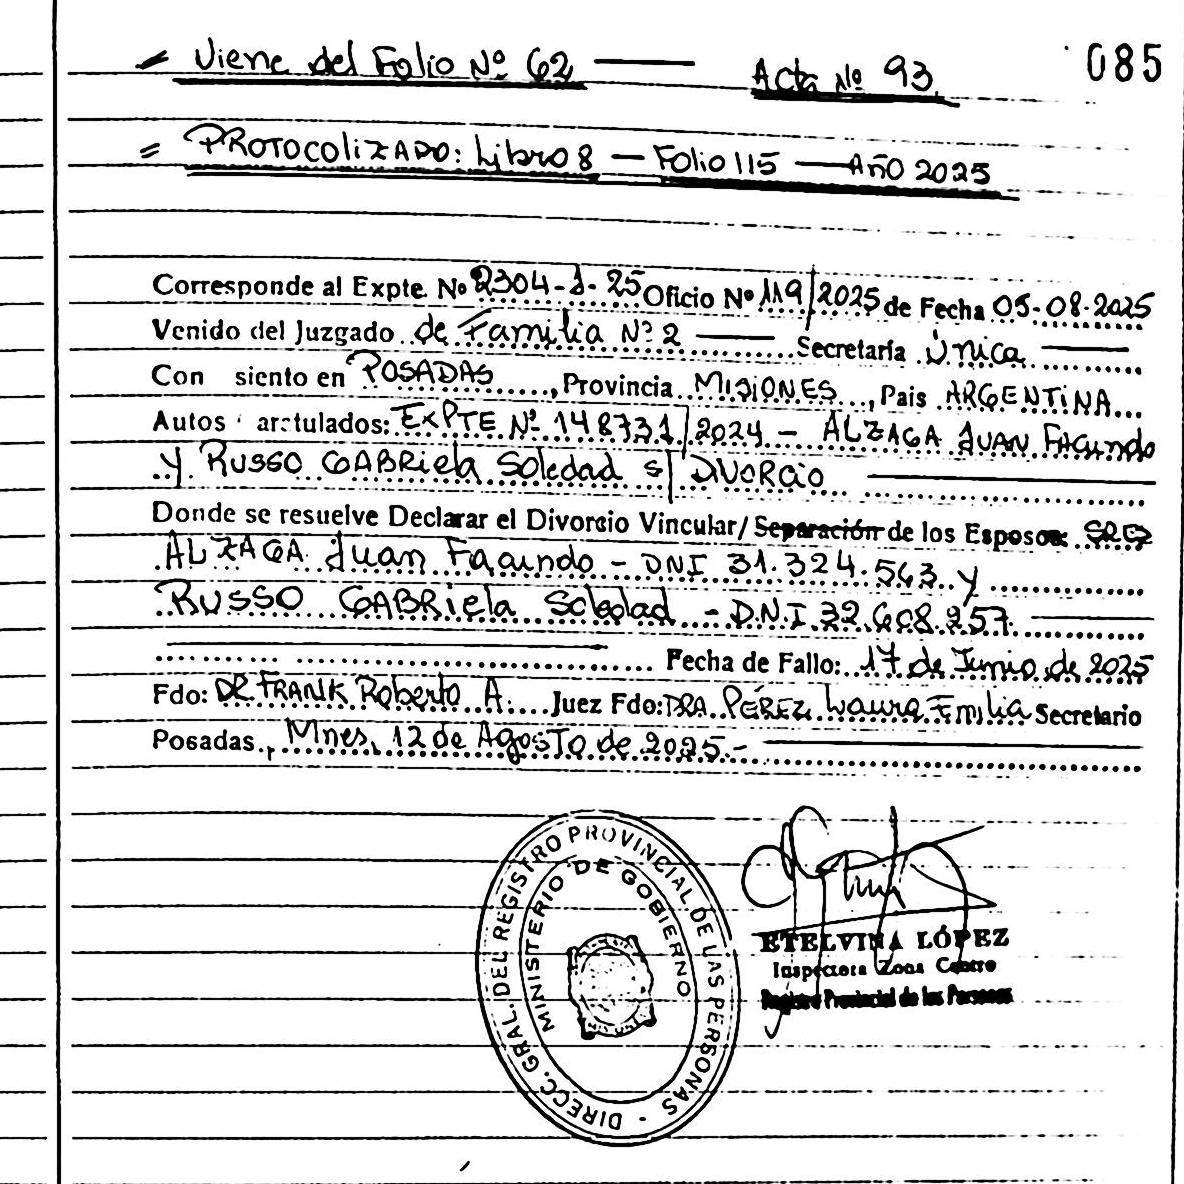 = Viene del Folio Nº 62 — Acta Nº 93.
085
= PROTOCOLIZADO: Libro 8 — Folio 115 — AÑO 2025
Corresponde al Expte. Nº 2304-J-25 Oficio Nº 119/2025 de Fecha 05-08-2025
Venido del Juzgado de Familia Nº 2 — Secretaría Única —
Con siento en POSADAS, Provincia MISIONES, Pais ARGENTINA
Autos aratulados: EXPTE Nº 148731/2024 – ALZAGA JUAN FACUNDO
Y RUSSO GABRIELA Soledad s/ DIVORCIO —
Donde se resuelve Declarar el Divorcio Vincular/ Separación de los Esposos: SRES
ALZAGA Juan Facundo – DNI 31.324.563 y
RUSSO GABRIELA Soledad – D.N.I 32.608.257 —
— Fecha de Fallo: 17 de Junio de 2025
Fdo: DR FRANK Roberto A. Juez Fdo: DRA. PÉREZ, Laura Emilia Secretario
Posadas, Mnes, 12 de Agosto de 2025.-
DIRECC. GRAL. DEL REGISTRO PROVINCIAL DE LAS PERSONAS -
MINISTERIO DE GOBIERNO
ETELVINA LÓPEZ
Inspectora Zona Centro
Registro Provincial de las Personas